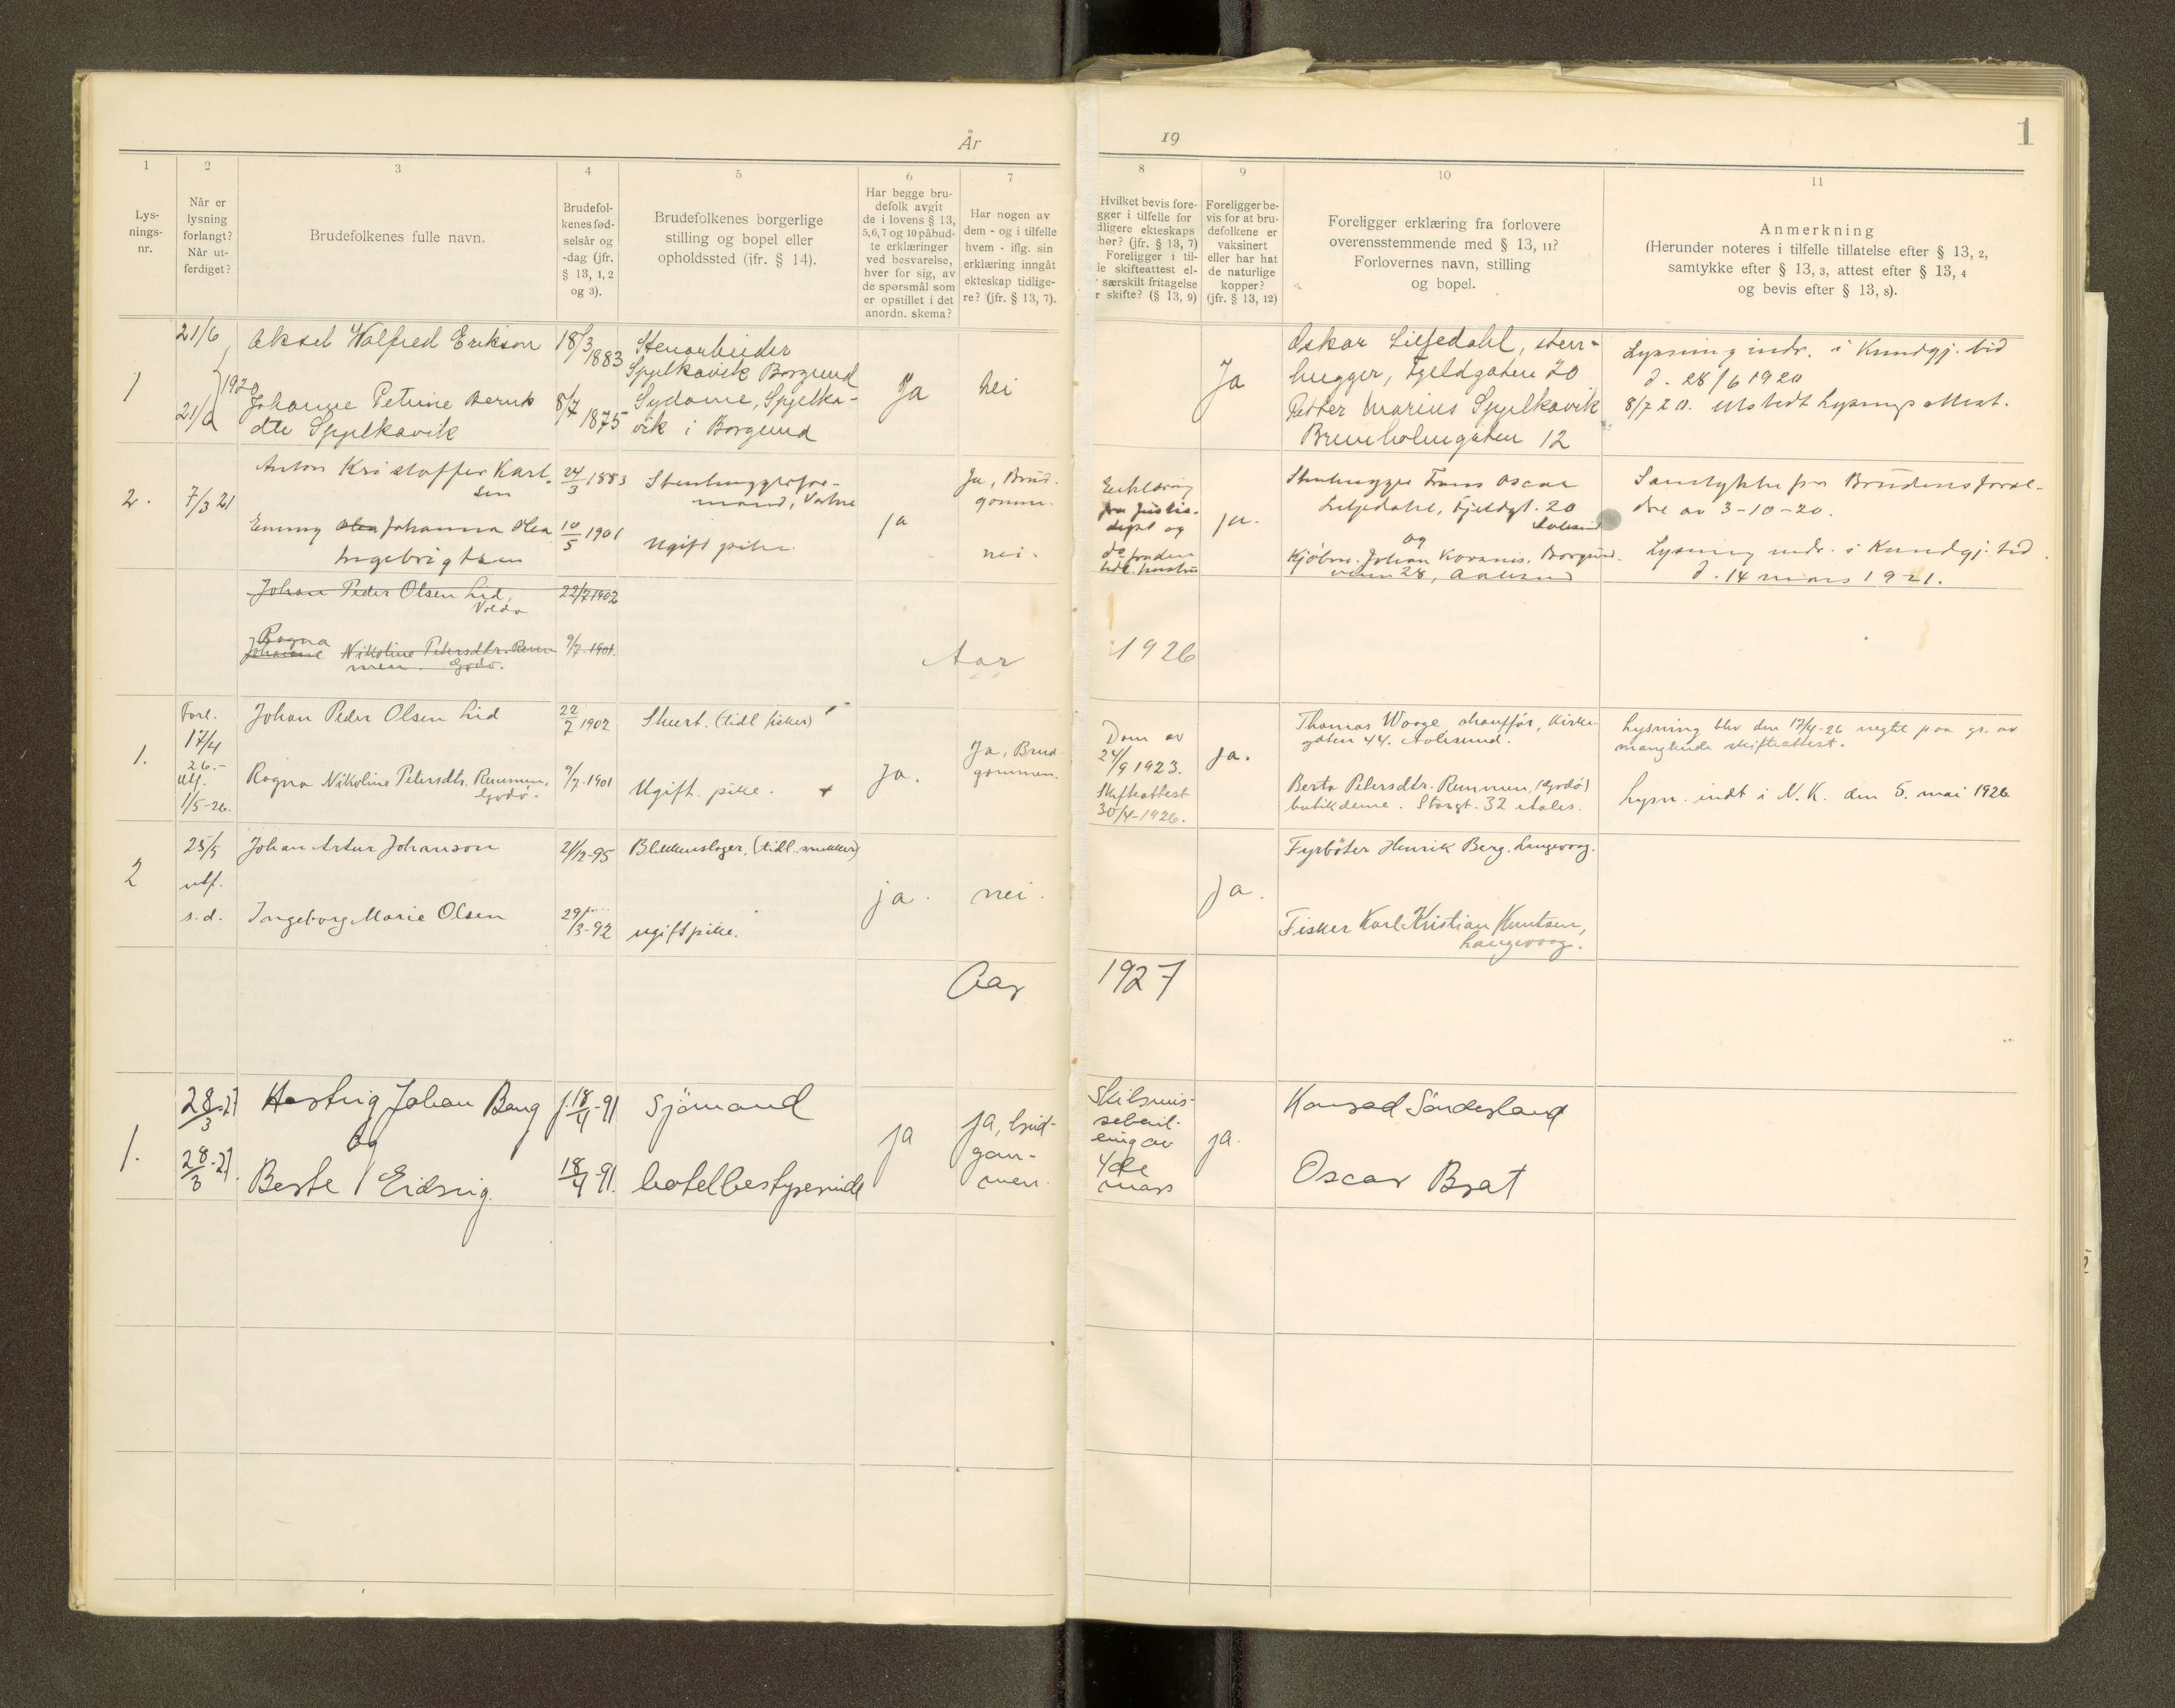 År 19
1
1
Lys-
nings-
nr.
2
Når er
lysning
forlangt?
Når ut-
ferdiget?
3
Brudefolkenes fulle navn.
4
Brudefol-
kenes fød-
selsår og
-dag (jfr.
§ 13, 1, 2
og 3).
5
Brudefolkenes borgerlige
stilling og bopel eller
opholdssted (ifr. § 14).
6
Har begge bru-
defolk avgit
de i lovens § 13,
5,6,7 og 10 påbud-
te erklæringer
ved besvarelse,
hver for sig, av
de spørsmål som
er opstillet i det
anordn. skema?
7
Har nogen av
dem - og i tilfelle
hvem - iflg. sin
erklæring inngåt
ekteskap tidlige-
re? (jfr. § 13, 7).
8
Hvilket bevis fore-
gger i tilfelle for
dligere ekteskaps
hør? (jfr. § 13, 7)
Foreligger i til-
le skifteattest el-
særskilt fritagelse
r skifte? (§ 13, 9)
9
Foreligger be-
vis for at bru-
defolkene er
vaksinert
eller har hat
de naturlige
kopper?
(jfr. § 13, 12)
10
Foreligger erklæring fra forlovere
overensstemmende med § 13, 11?
Forlovernes navn, stilling
og bopel.
11
Anmerkning
(Herunder noteres i tilfelle tillatelse efter § 13, 2,
samtykke efter § 13, 3, attest efter § 13, 4
og bevis efter § 13, 8).
1
21/6
1920
Aksel Walfred Erikson
18/3 1883
Stenarbeider
Spjelkavik Borgund
Johanne Petrine Bernts
dtr Spjelkavik
8/7 1875
Sydame, Spjelka-
vik i Borgund
Ja
nei
Ja
Oskar Liljedahl, sten-
hugger, Fjeldgaten 20
Petter Marius Spjelkavik
Bremholmgaten 12
Lysning indr. i Kundgj. tid
d. 28/6 1920
8/7 20. Utstedt lysningsattest.
2.
7/3 21
Anton Kristoffer Karl-
sen
24/3 1883
Stenhuggerfor-
mand,
Emmy Olea Johanna Olea
Ingebrigtsen
10/5 1901
Ugift pike.
ja
Ja, Brud-
gomm.
nei.
Erklæring
fra Justis-
dept og
ja.
Stenhugger Frans Oscar
Liljedahl, Fjeldgt. 20
Aalesund
og
Kjøbm. Johan Korsnes, Borgund-
veien 28, Aalesund
Samtykke fra Brudens foræl-
dre av 3-10-20.
Lysning indr. i Kundgj. tid.
d. 14 mars 1921.
Johan Peder Olsen Lid,
Volda
22/7 1902
Ragna
Johanne Nikoline Petersdtr. Rem
men. Godø.
9/7 1901.
Aar 1926
1.
Forl.
17/4
26.-
Utf.
1/5-26.
Johan Peder Olsen Lid
22/7 1902
Stuert. (tidl fisker)
Ragna Nikoline Petersdtr. Remmen,
Godø.
9/7-1901
Ugift. pike.
Ja.
Ja, Brud-
gommen.
Dom av
24/9 1923.
Skifteattest
30/4-1926.
Ja.
Thomas Waage, chauffør, Kirke-
gaten 44. Aalesund.
Berta Petersdtr. Remmen, (Godø)
butikdame. Storgt. 32 Aales.
Lysning blev den 17/4-26 negtet paa gr. av
manglende skifteattest.
Lysn. indt i N. K. den 5. mai 1926
2
25/5
utf.
s.d.
Johan Artur Johanson
21/12-95
Blikkenslager, (tidl. snekker)
Ingeborg Marie Olsen
29/3-92
ugift pike.
ja.
nei.
Ja.
Fyrbøter Henrik Berg. Langevaag.
Fisker Karl Kristian Knutsen,
Langevaag.
Aar 1927
1.
28/3-27
Hartvig Johan Bang
f. 18/4-91
Sjømand
og
28/3-27.
Berte Eidsvig.
18/4-91.
hotelbestyrerinde
ja
ja, brud-
gom-
men.
Skilsmis-
sebevil-
ling av
4de
mars
ja.
Konrad Sønderland
Oscar Brat